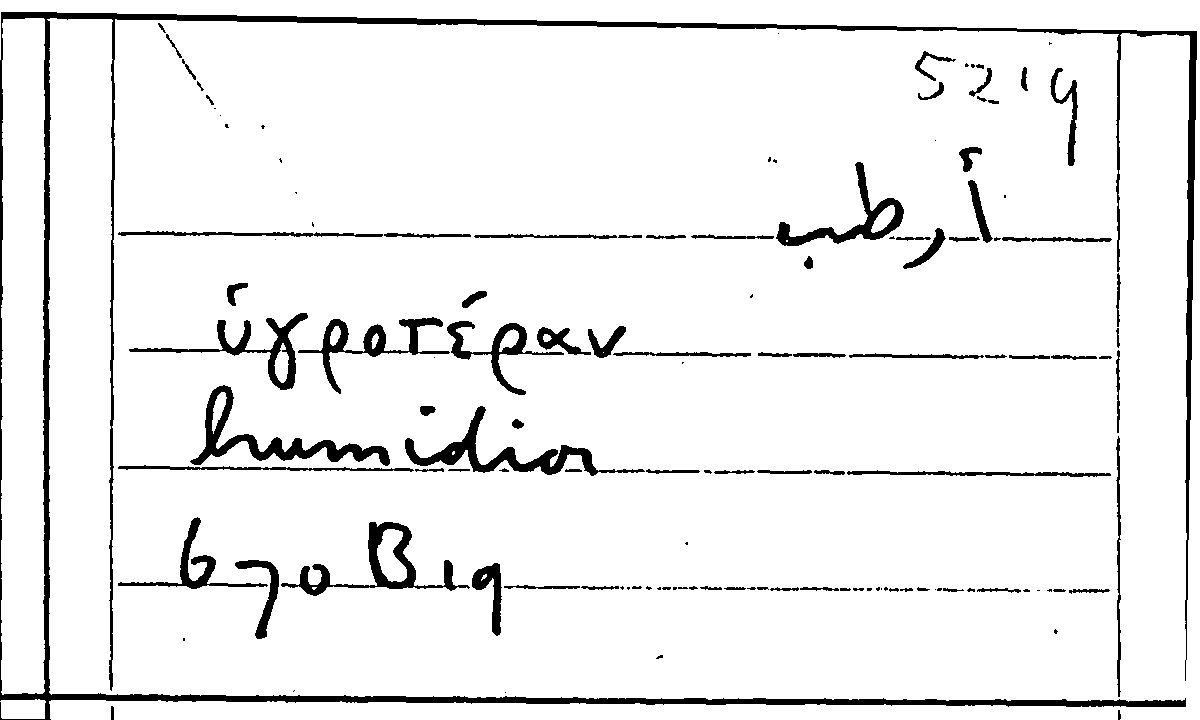 52,9
أرطب
ὑγροτέραν
humidior
670 B 19